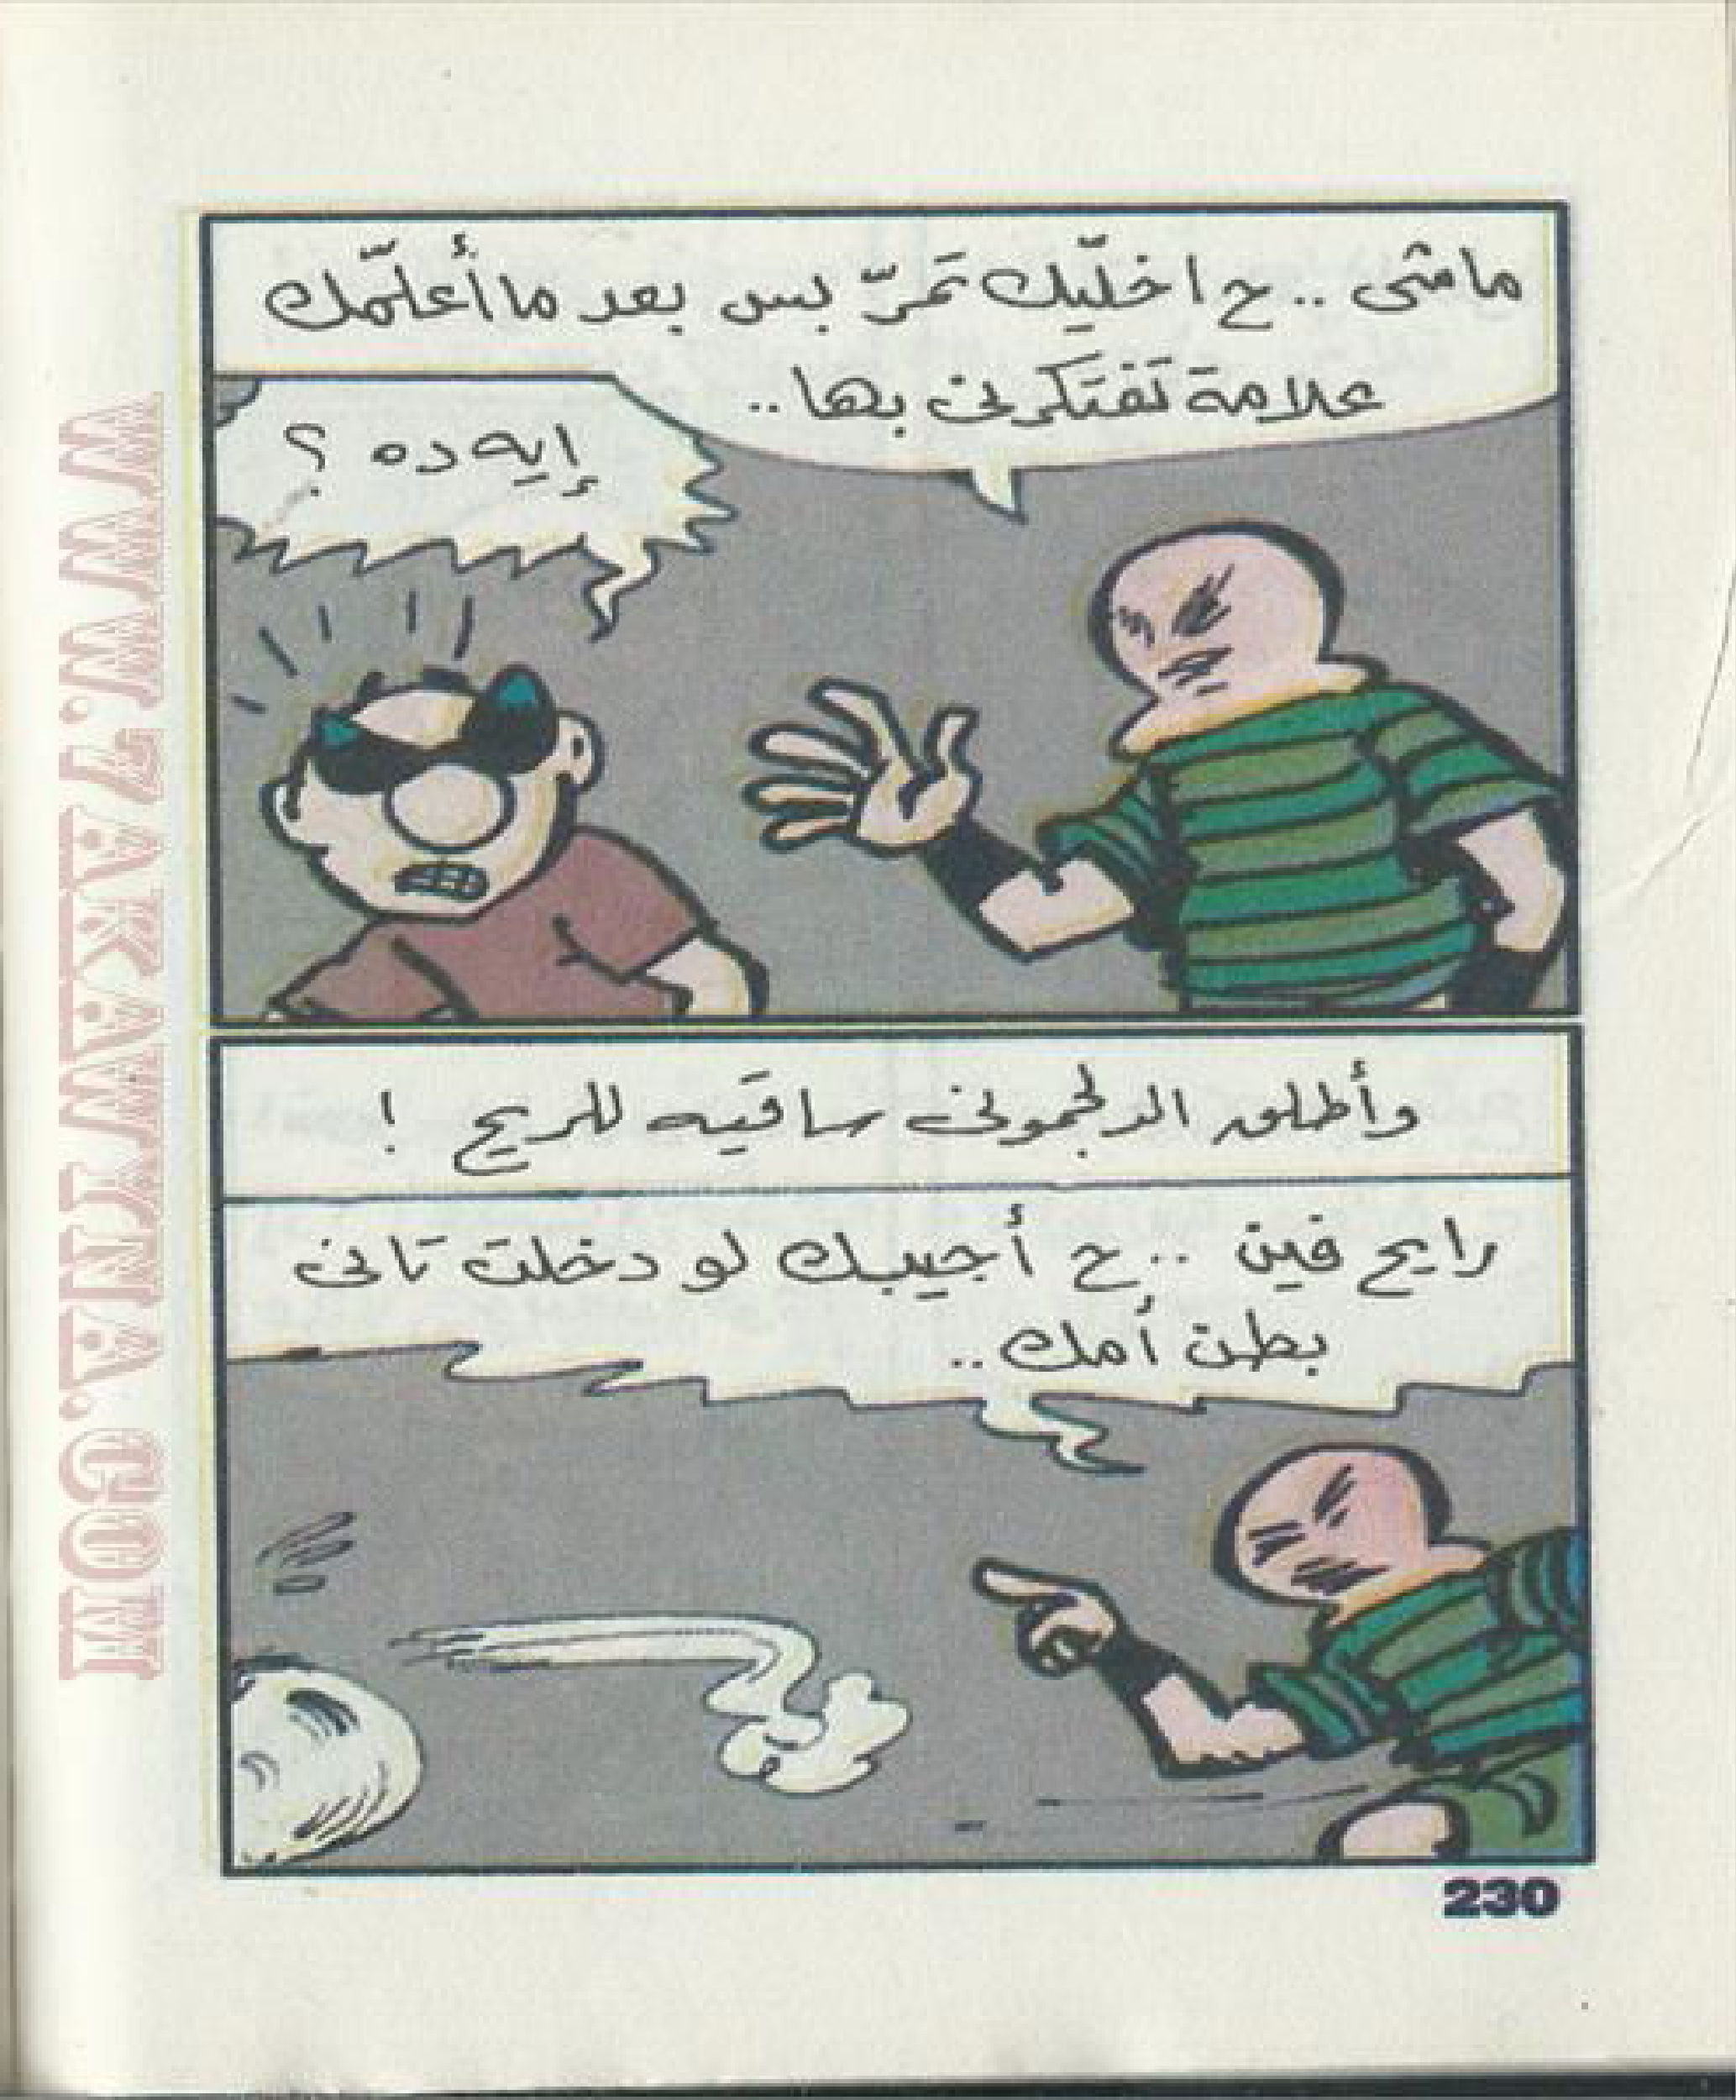 ماشى .. ح اخلّيك تَمرّ بس بعد ما أعلّمك
علامة تَفتَكرنى بها ..
إيه ده ؟
وأطلق الدلجمونى ساقَيه للريح !
رايح فين .. ح أجيبك لو دخلت تانى
بطن أمك ..
230
WWW.7AKAWITNA.COM